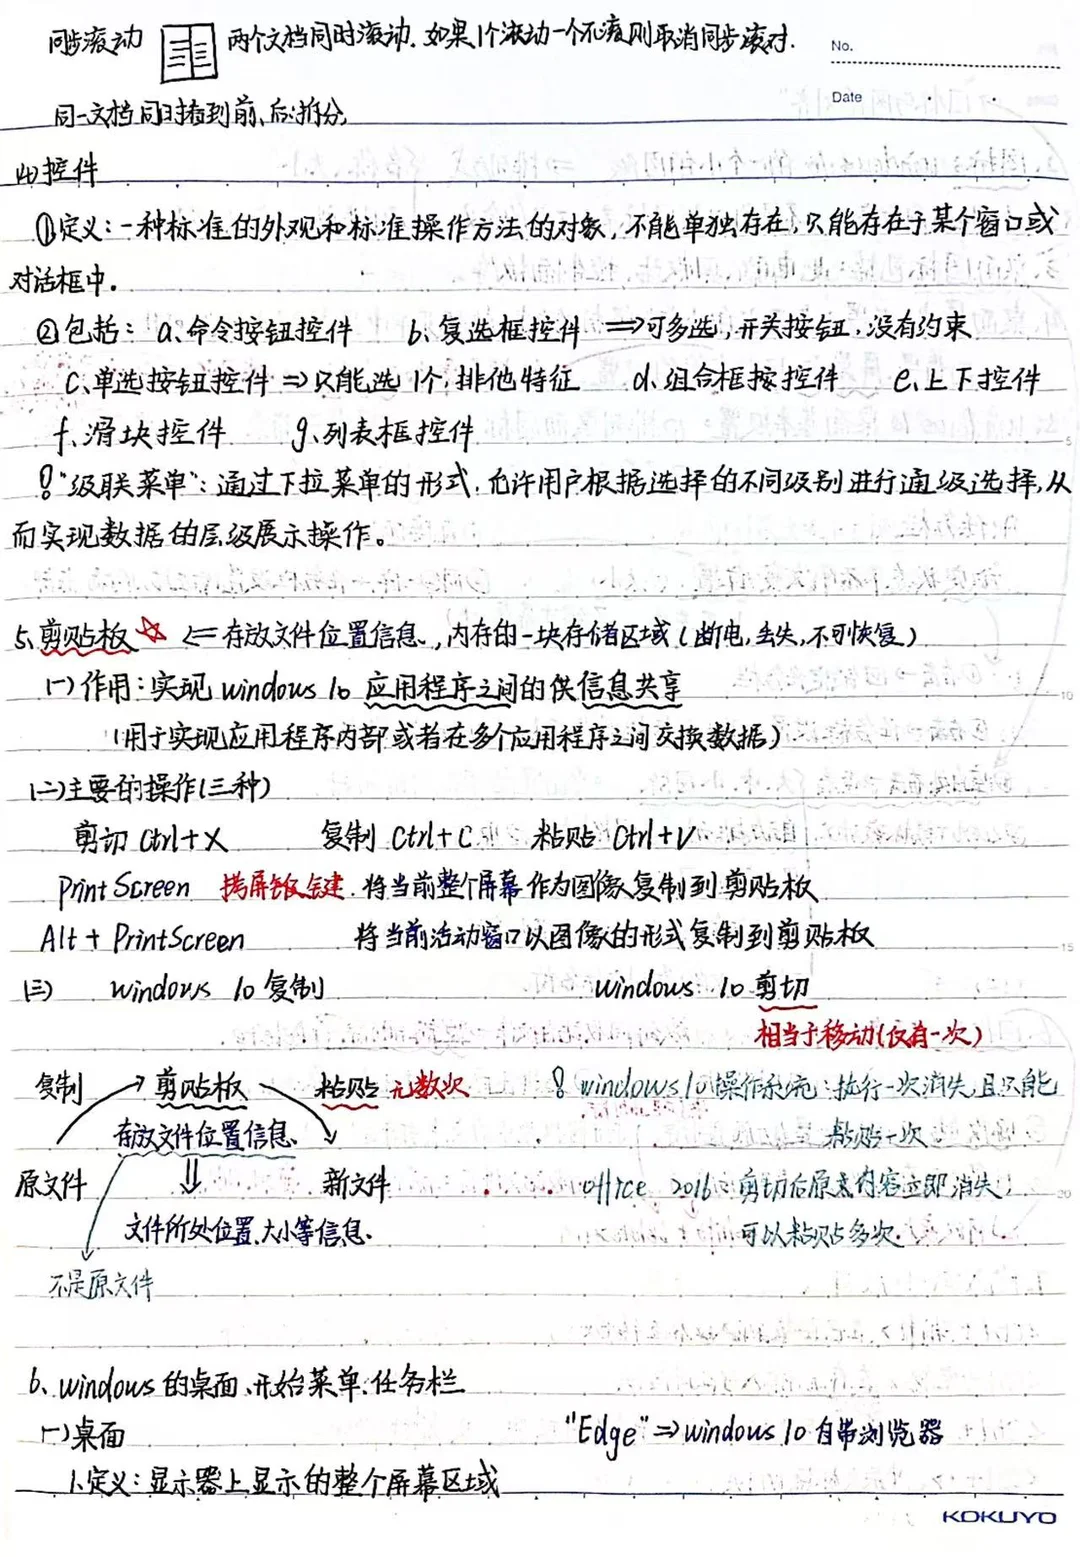 同步滚动 两个文档同时滚动.如果1个滚动一个不滚则取消同步滚动.
No.
Date
同一文档同时看到前、后:拆分
(4)控件
①定义:一种标准的外观和标准操作方法的对象,不能单独存在,只能存在于某个窗口或
对话框中。
②包括: a、命令按钮控件 b、复选框控件 ⇒可多选,开关按钮,没有约束
c、单选按钮控件⇒只能选1个,排他特征 d、组合框按控件 e、上下控件
f、滑块控件 g、列表框控件
"级联菜单":通过下拉菜单的形式,允许用户根据选择的不同级别进行逐级选择,从
而实现数据的层级展示操作。
5、剪贴板☆ ⇐存放文件位置信息、,内存的一块存储区域(断电,丢失,不可恢复)
(一)作用:实现windows 10 应用程序之间的供信息共享
(用于实现应用程序内部或者在多个应用程序之间交换数据)
(二)主要的操作(三种)
剪切 Ctrl+X 复制 Ctrl+C 粘贴 Ctrl+V
Print Screen 拷屏键.将当前整个屏幕作为图像复制到剪贴板
Alt + PrintScreen 将当前活动窗口以图像的形式复制到剪贴板
(三) windows 10 复制 windows 10 剪切
相当于移动(仅有一次)
复制 → 剪贴板 粘贴 无数次 windows10操作系统:执行一次消失,且只能
存放文件位置信息、 粘贴一次
原文件 ⇓ 新文件 office 2016:剪切后原来内容立即消失,
文件所处位置、大小等信息. 可以粘贴多次.
不是原文件
6、windows的桌面、开始菜单.任务栏
(一)桌面 "Edge"⇒windows 10 自带浏览器
1.定义:显示器上显示的整个屏幕区域
KOKUYO